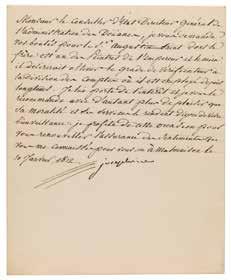 Monsieur le Conseiller d'Etat Directeur général de
l'administration des Douanes, je vous recommande
vos bontés pour le Sr. Augustin dont le
père est un des de l'empereur et le mien
il désireroit obtenir le grade de vérificateur à
la Division des où il est employé depuis
longtems. Je lui porte de l'intérêt et je vous le
recommande avec d'autant plus de plaisir que
sa moralité et le rendent digne de votre
bienveillance. je profite de cette occasion pour
vous renouveller l'assurance des sentimens que
vous me connaissez pour vous. à Malmaison le
10 1812
Joséphine